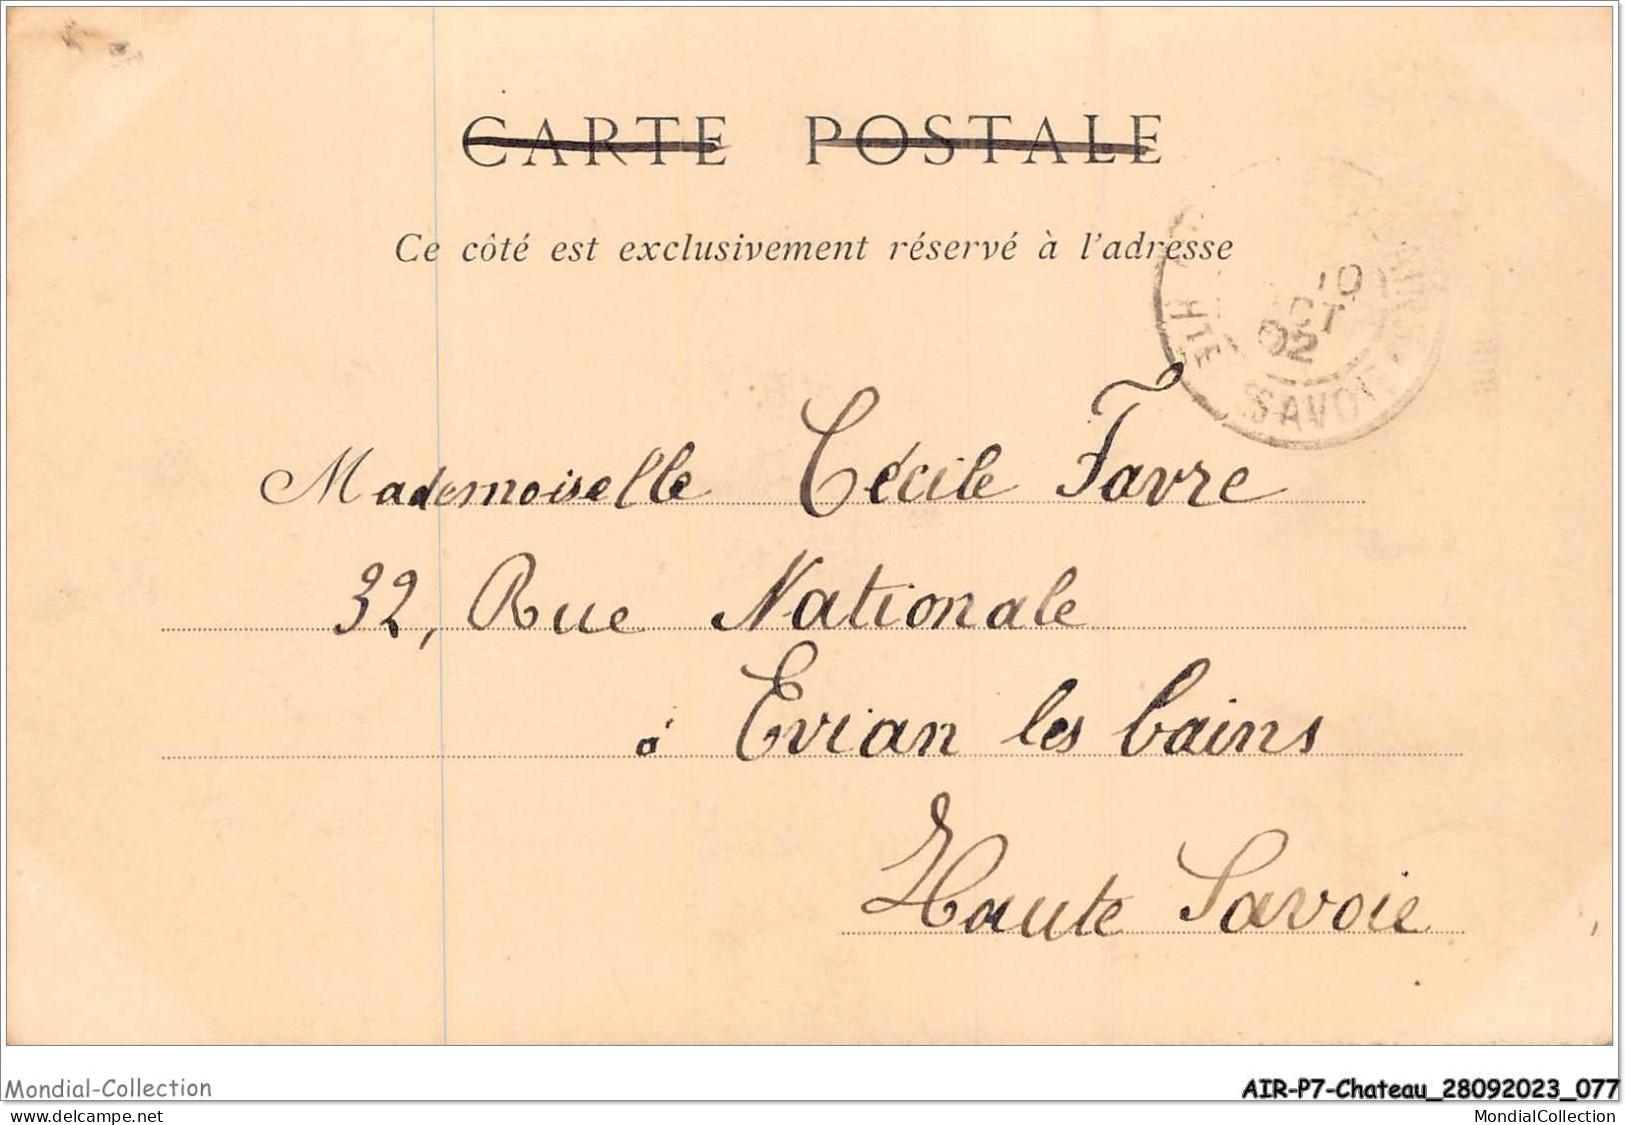 CARTE POSTALE
Ce côté est exclusivement réservé à l'adresse
10
OCT
02
HTE SAVOIE
Mademoiselle Cécile Favre
32, Rue Nationale
à Evian les bains
Haute Savoie
Mondial-Collection
AIR-P7-Chateau_28092023_077
www.delcampe.net
MondialCollection